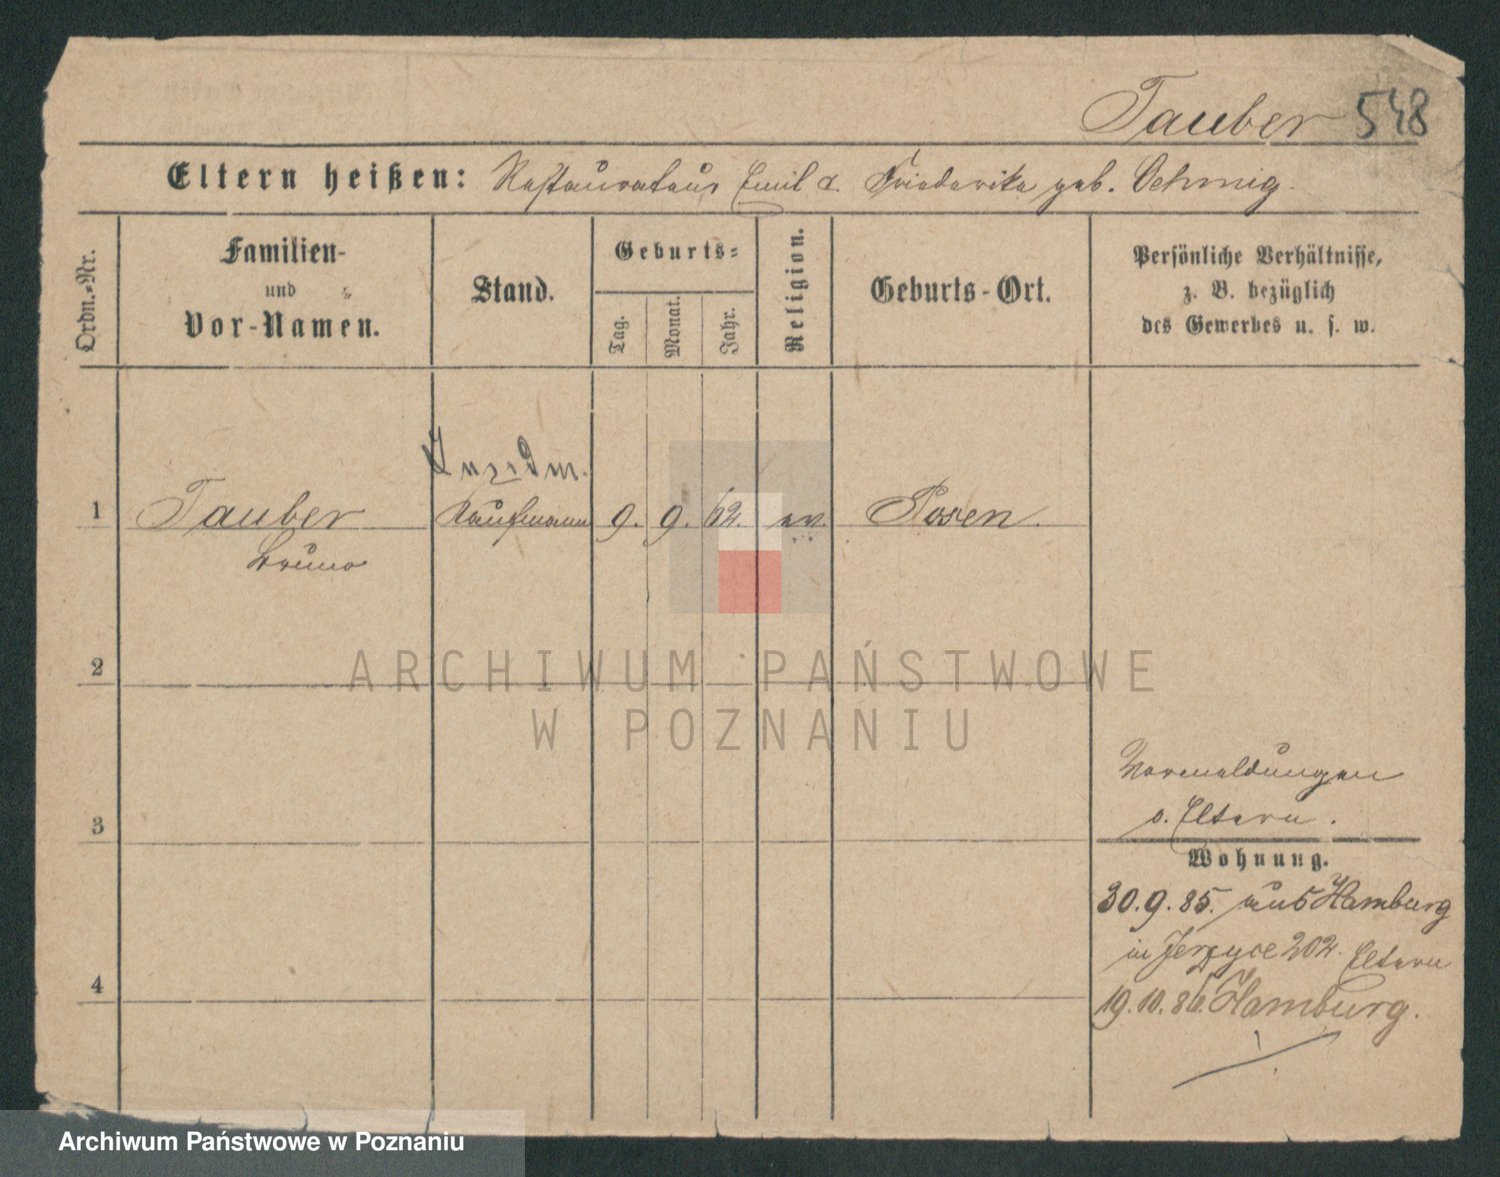 Tauber 548
Eltern heißen: Restaurateur Emil u. Friederike geb. Oehmig.
Ordn.-Nr.
Familien-
und
Vor-Namen.
Stand.
Geburts-
Tag.
Monat.
Jahr.
Religion.
Geburts-Ort.
Persönliche Verhältnisse,
z. B. bezüglich
des Gewerbes u. s. w.
1 Tauber Kaufmann 9. 9. 62. ev. Posen.
Bruno
2
ARCHIWUM PAŃSTWOWE
W POZNANIU
Vormeldungen
s. Eltern.
3
Wohnung.
30.9.85. aus Hamburg
in Jerzyce 202. Eltern
4
19.10.86. Hamburg.
Archiwum Państwowe w Poznaniu